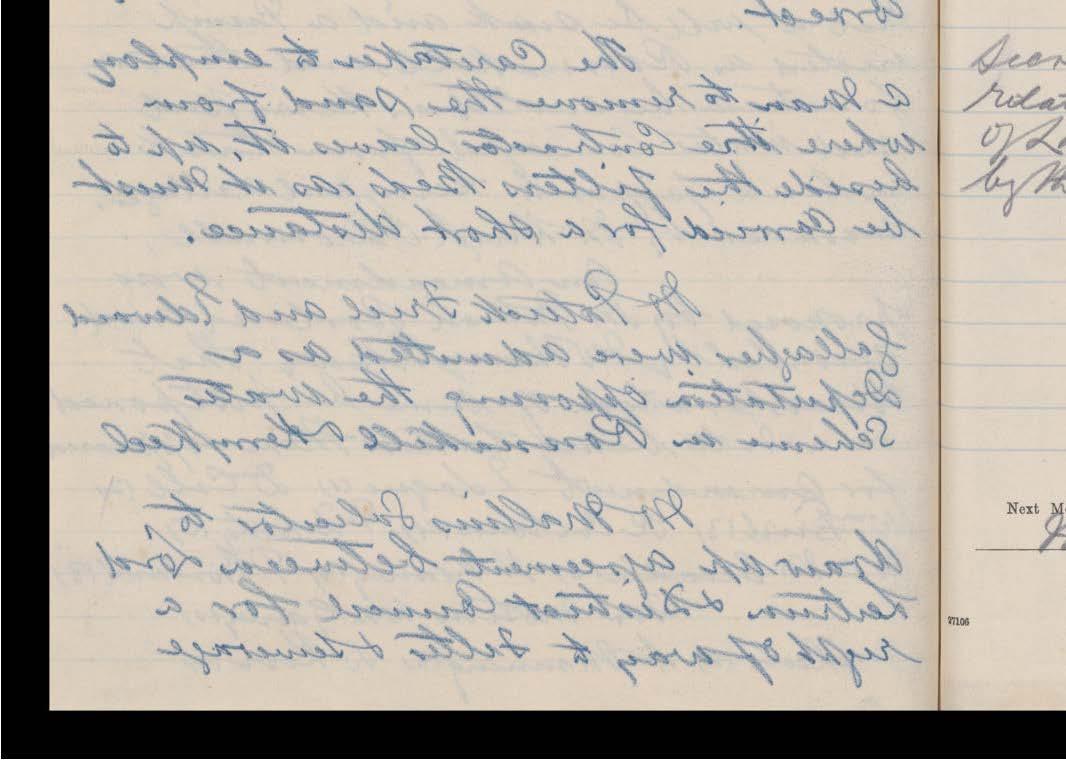 correct.
The Caretaker to employ
a man to remove the sand from
where the Contractor leaves it, up to
beside the filters Beds as it must
be Carried for a short distance.
Mr Patrick Friel and Edward
Gallagher were admitted as a
Deputation opposing the Water
Scheme in
Mr Mallins Solicitor to,
draw up agreement between Lord
Leitrim & District Council for a
right of way to Filter & Sewerage
Secr
relat
of L
by th
Next M
27106